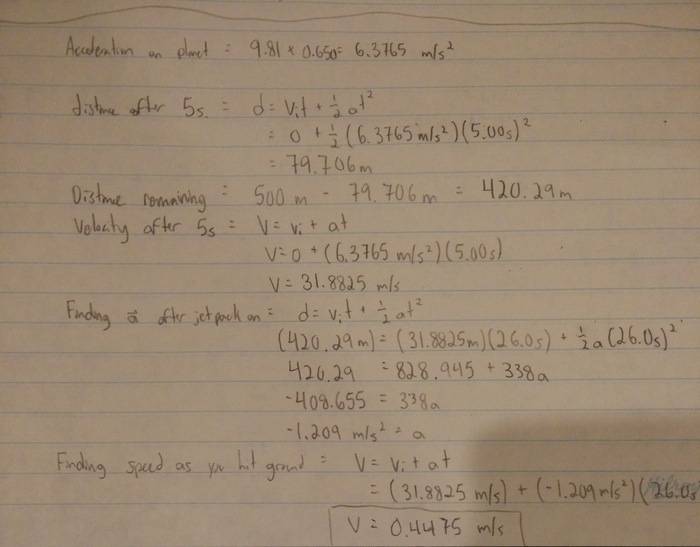 Acceleration on planet = 9.81 × 0.650 = 6.3765 m/s²
distance after 5s. = d = vᵢt + ½at²
= 0 + ½(6.3765 m/s²)(5.00s)²
= 79.706m
Distance remaining = 500m - 79.706m = 420.29m
Velocity after 5s = V = vᵢ + at
V = 0 + (6.3765 m/s²)(5.00s)
V = 31.8825 m/s
Finding a⃗ after jetpack on = d = vᵢt + ½at²
(420.29m) = (31.8825m)(26.0s) + ½a(26.0s)²
420.29 = 828.945 + 338a
-408.655 = 338a
-1.209 m/s² = a
Finding speed as you hit ground = V = vᵢ + at
= (31.8825 m/s) + (-1.209m/s²)(26.0s
V = 0.4475 m/s